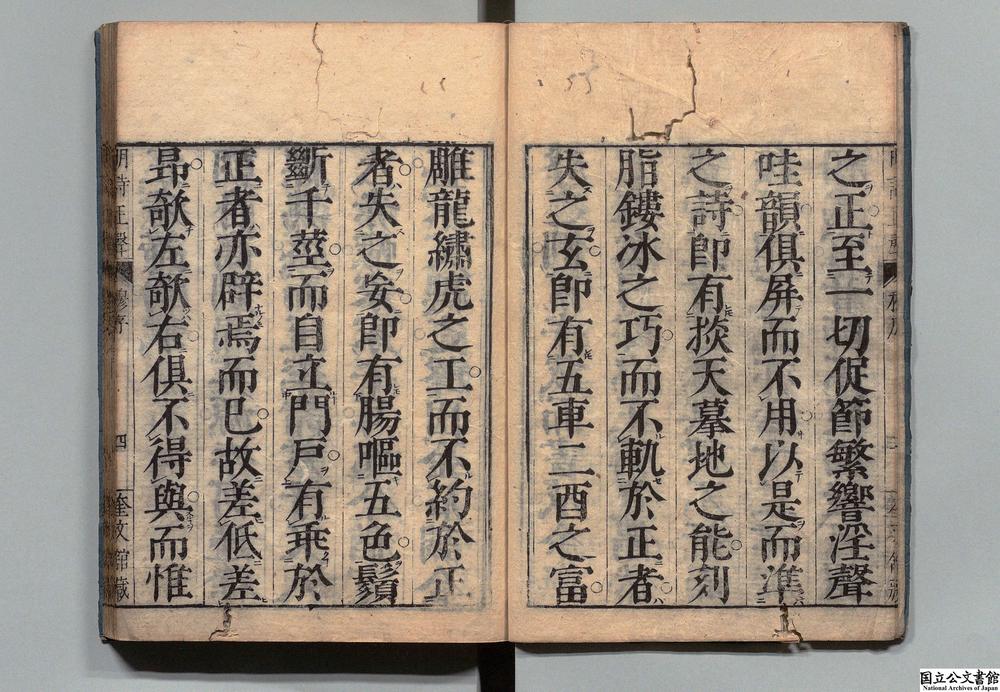 之正至一切促節繁響淫聲
哇韻俱屏而不用以是而準
之詩即有掞天摹地之能刻
脂鏤冰之巧而不軌於正者
失之玄即有五車二酉之富
雕龍繡虎之工而不約於正
者失之妄即有腸嘔五色鬚
斷千莖而自立門戶有乖於
正者亦辟焉而已故差低差
昂欹左欹右俱不得與而惟
明詩正聲
序
四
奎文館藏
国立公文書館
National Archives of Japan